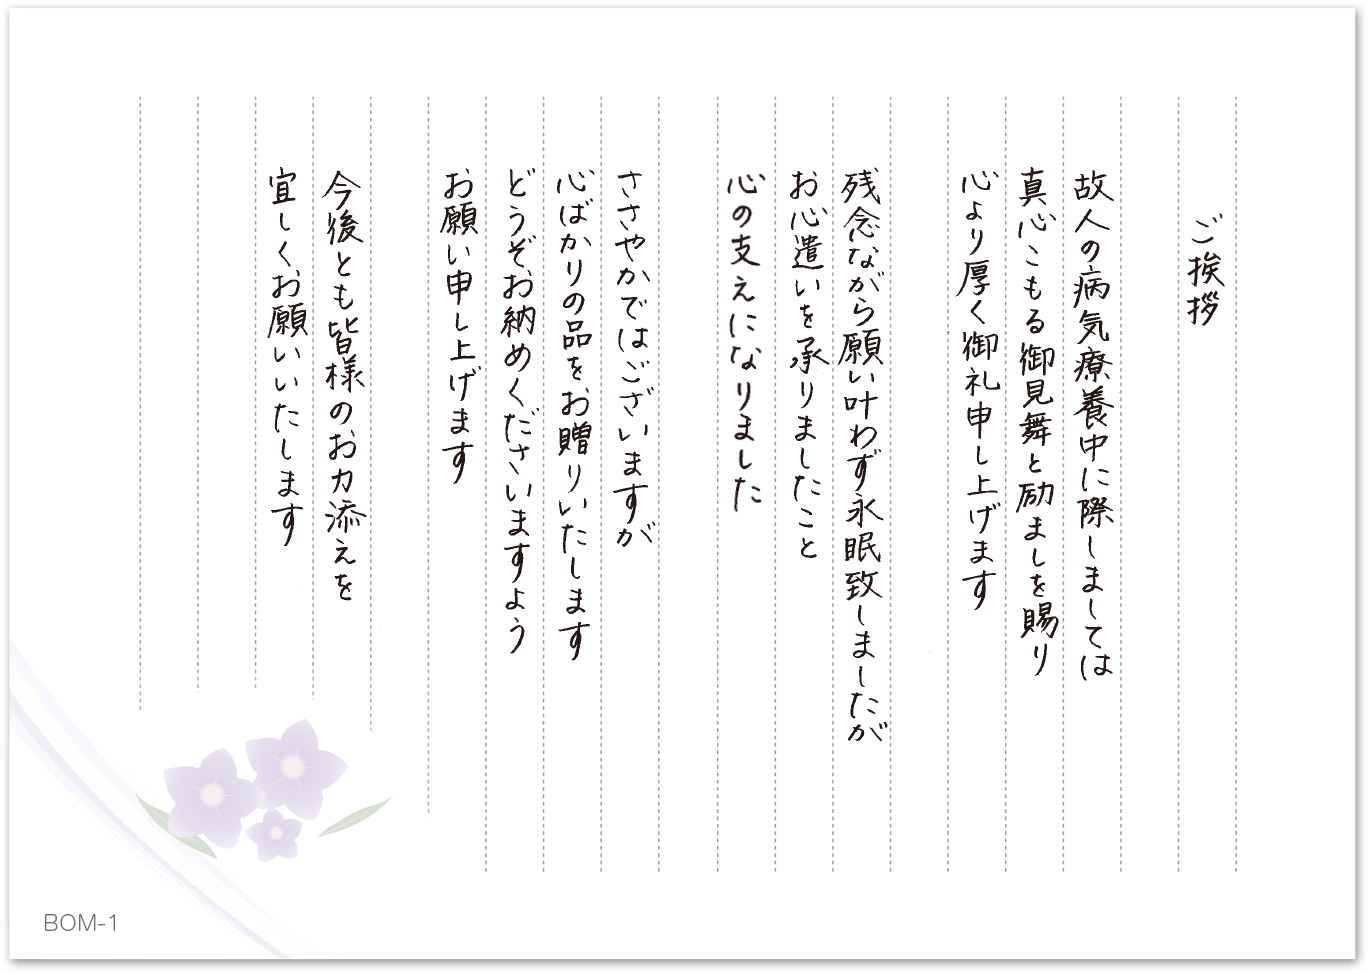 ご挨拶
故人の病気療養中に際しましては
真心こもる御見舞と励ましを賜り
心より厚く御礼申し上げます
残念ながら願い叶わず永眠致しましたが
お心遣いを承りましたこと
心の支えになりました
ささやかではございますが
心ばかりの品をお贈りいたします
どうぞお納めくださいますよう
お願い申し上げます
今後とも皆様のお力添えを
宜しくお願いいたします
BOM-1